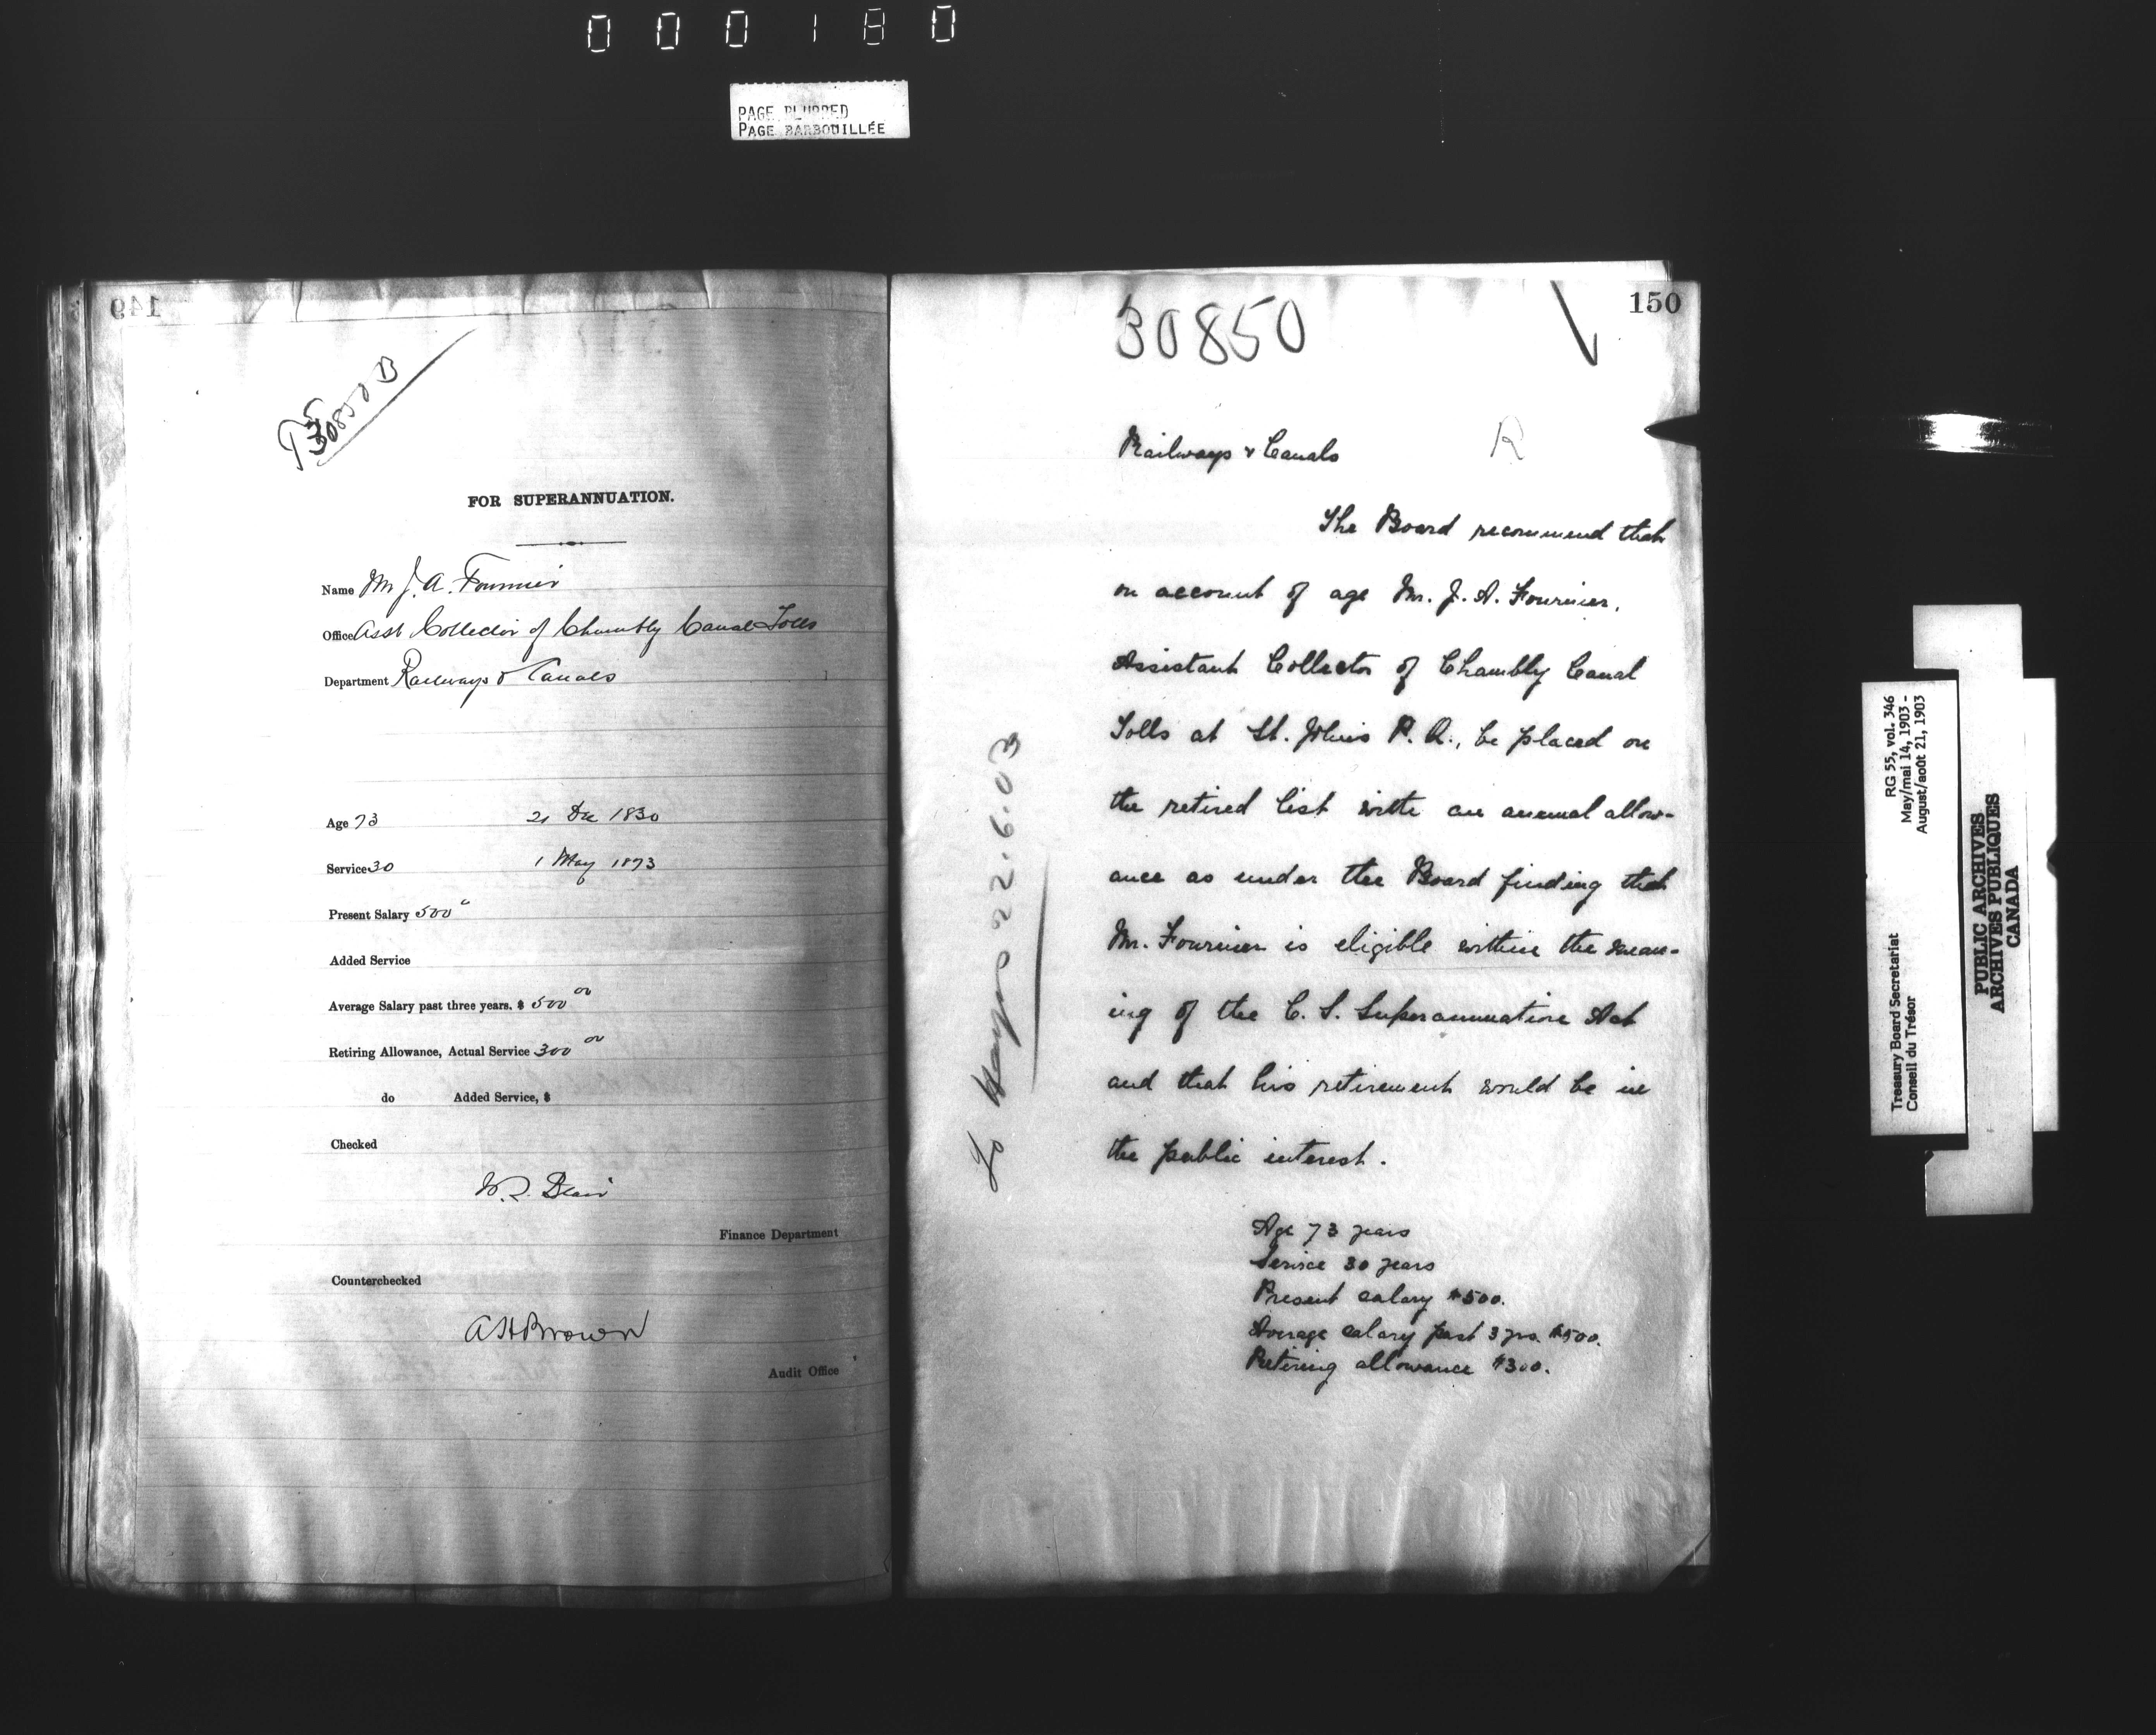 000180
PAGE BLURRED
PAGE BARBOUILLÉE
149
30850 B
FOR SUPERANNUATION.
Name Mr J. A. Fournier
Office Asst Collector of Chambly Canal Tolls
Department Railways & Canals
Age 73 21 Dec 1830
Service 30 1 May 1873
Present Salary 500
Added Service
Average Salary past three years. $ 500 00
Retiring Allowance, Actual Service 300 00
do Added Service, $
Checked
Finance Department
Counterchecked
A H Brown
Audit Office
150
30850
Railways & Canals R
The Board recommend that
on account of age Mr. J. A. Fournier,
Assistant Collector of Chambly Canal
Tolls at St. Johns P. Q., be placed on
the retired list with an annual allow-
ance as under the Board finding that
Mr. Fournier is eligible within the mean-
ing of the C. S. Superannuation Act
and that his retirement would be in
the public interest.
Age 73 years
Service 30 years
Present salary $500.
Average salary past 3 yrs. $500.
Retiring allowance $300.
22.6.03
RG 55, vol. 346
May/mai 14, 1903 -
August/août 21, 1903
Treasury Board Secretariat
Conseil du Trésor
PUBLIC ARCHIVES
ARCHIVES PUBLIQUES
CANADA